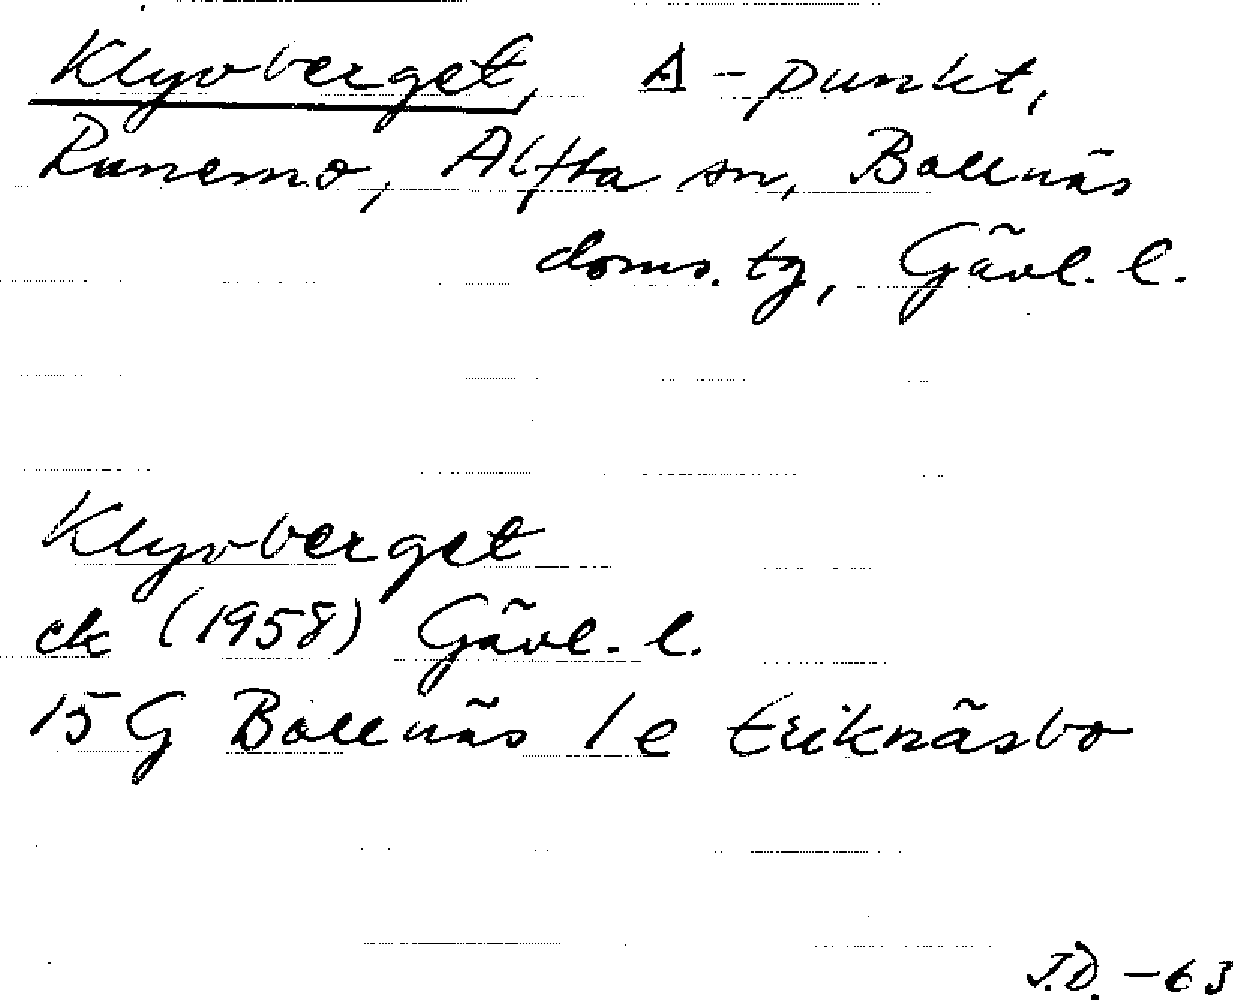 Klyvberget, A-punkt,
Runemo, Alfta sn, Bollnäs
doms. tg, Gävl. l.
Klyvberget
ek (1958) Gävl. l.
15G Bollnäs 1e Eriknäsbo
J.D. -63